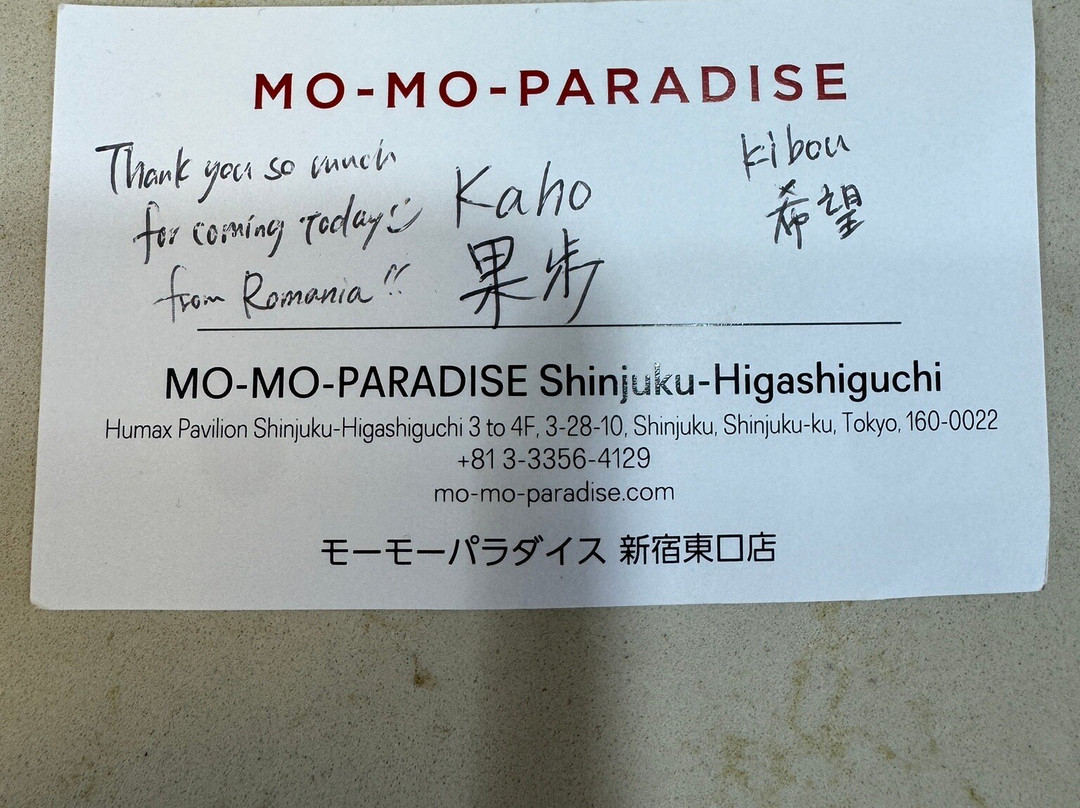 MO-MO-PARADISE
Thank you so much
for coming Today
from Romania!!
Kaho
果歩
kibou
希望
MO-MO-PARADISE Shinjuku-Higashiguchi
Humax Pavilion Shinjuku-Higashiguchi 3 to 4F, 3-28-10, Shinjuku, Shinjuku-ku, Tokyo, 160-0022
+81 3-3356-4129
mo-mo-paradise.com
モーモーパラダイス 新宿東口店